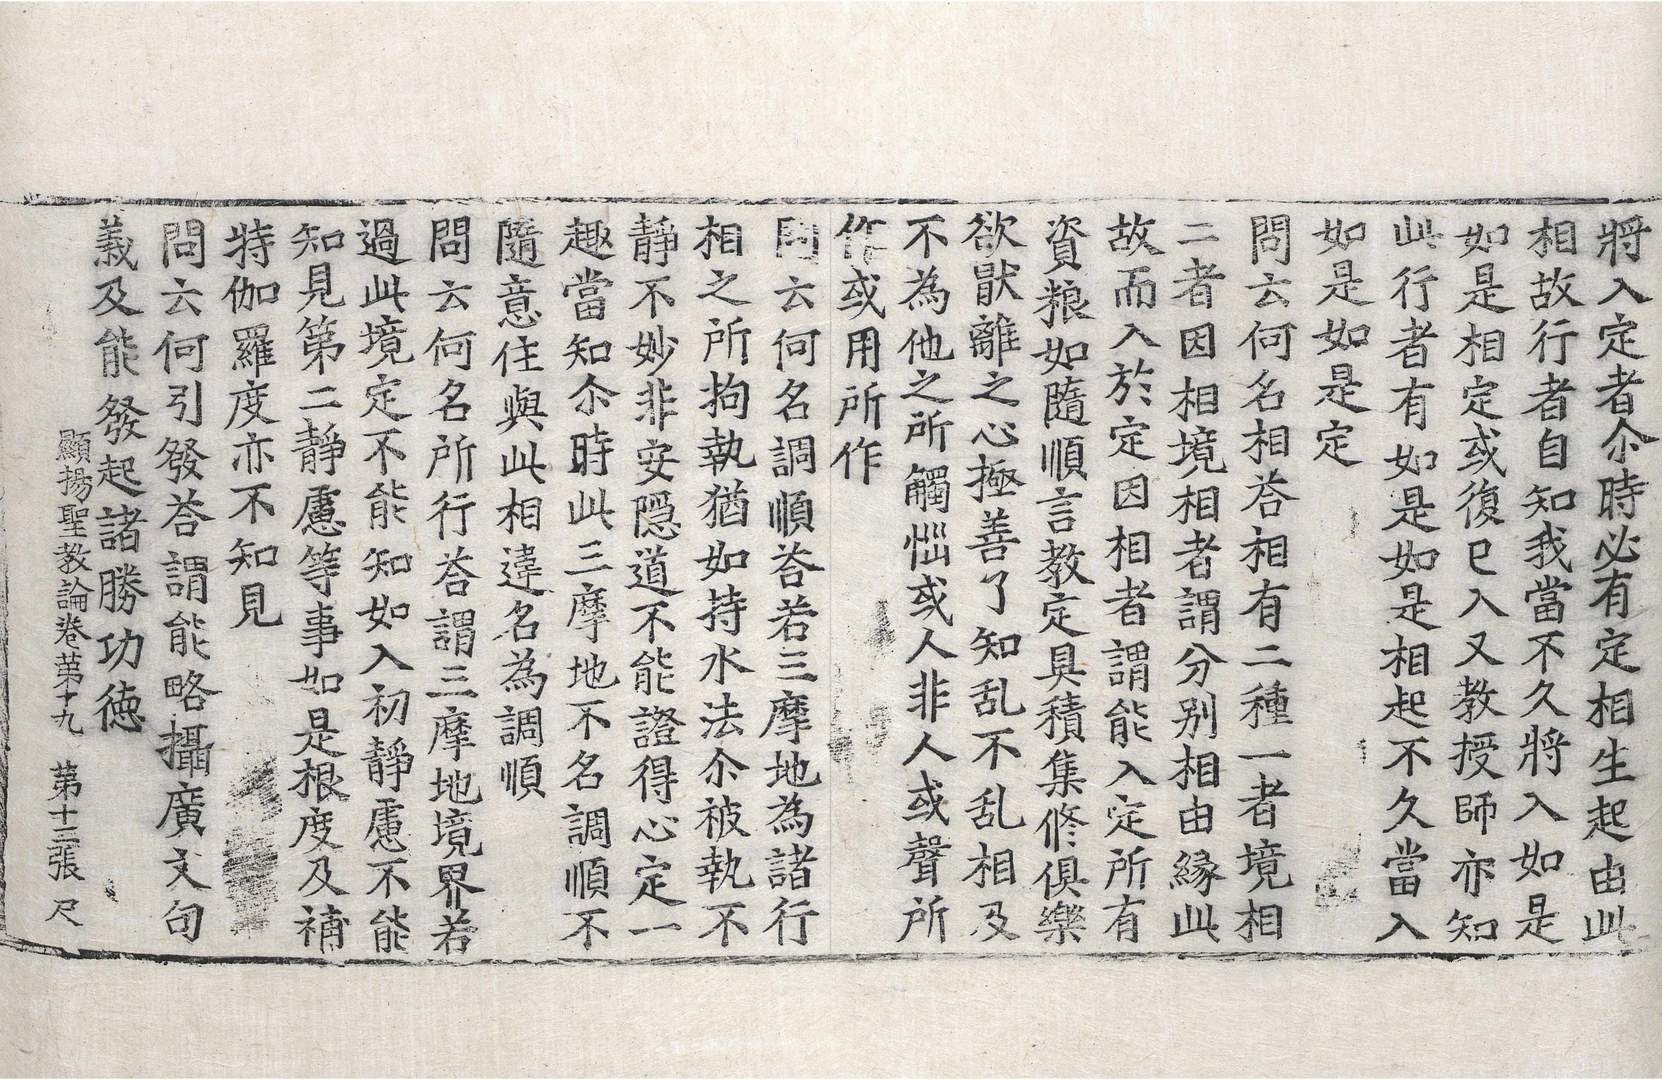 將入定者尒時必有定相生起由此
相故行者自知我當不久將入如是
如是相定或復已入又教授師亦知
此行者有如是如是相起不久當入
如是如是定
問云何名相荅相有二種一者境相
二者因相境相者謂分别相由緣此
故而入於定因相者謂能入定所有
資粮如隨順言教定具積集修俱樂
欲猒離之心極善了知乱不乱相及
不為他之所觸惱或人非人或聲所
作或用所作
問云何名調順荅若三摩地為諸行
相之所拘執猶如持水法尒被執不
靜不妙非安隱道不能證得心定一
趣當知尒時此三摩地不名調順不
隨意住與此相違名為調順
問云何名所行荅謂三摩地境界若
過此境定不能知如入初靜慮不能
知見第二靜慮等事如是根度及補
特伽羅度亦不知見
問云何引發荅謂能略攝廣文句
義及能發起諸勝功德
顯揚聖教論卷第十九 第十三張 尺